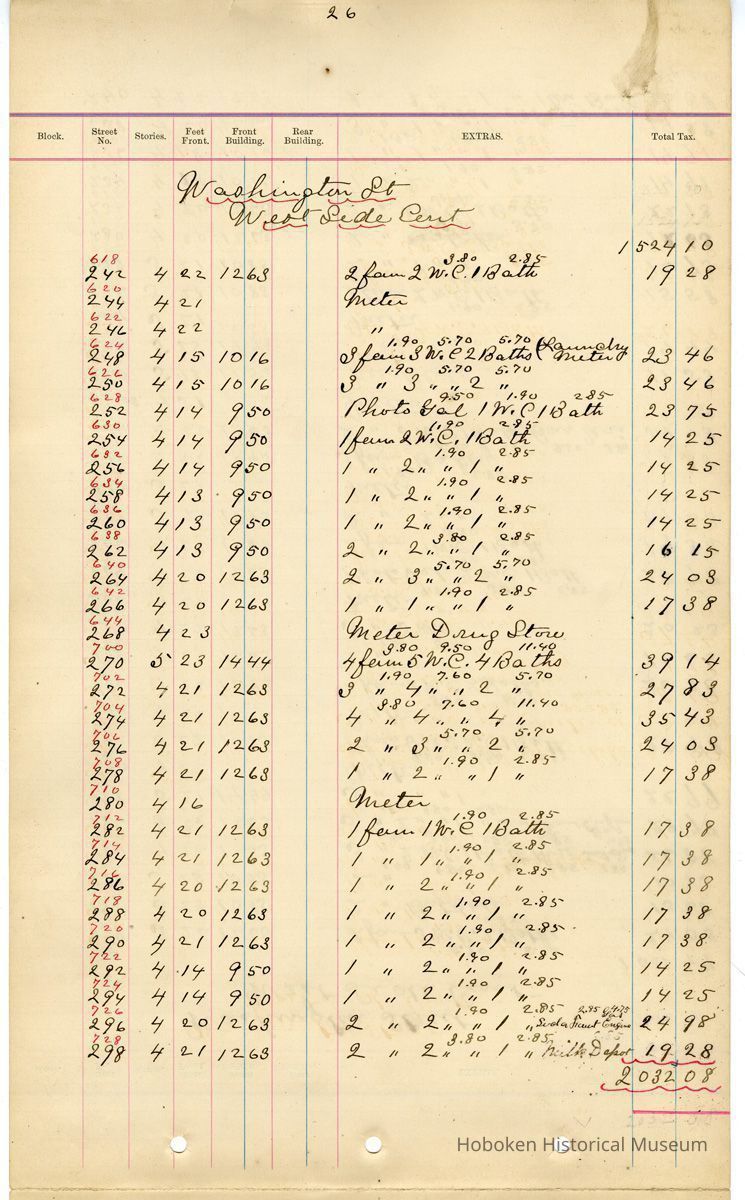 26
Block. Street No. Stories. Feet Front. Front Building. Rear Building. EXTRAS. Total Tax.
Washington St
West Side Cont
1524 10
618 3.80 2.85
242 4 22 12 63 2 fam 2 W.C. 1 Bath 19 28
620
244 4 21 Meter
622
246 4 22 "
624 1.90 5.70 5.70
248 4 15 10 16 3 fam 3 W.C 2 Baths (Laundry Meter 23 46
626 1.90 5.70 5.70
250 4 15 10 16 3 " 3 " " 2 " 23 46
628 9.50 1.90 2.85
252 4 14 9 50 Photo Gal 1 W.C 1 Bath 23 75
630 1.90 2.85
254 4 14 9 50 1 fam 2 W.C. 1 Bath 14 25
632 1.90 2.85
256 4 14 9 50 1 " 2 " " 1 " 14 25
634 1.90 2.85
258 4 13 9 50 1 " 2 " " 1 " 14 25
636 1.90 2.85
260 4 13 9 50 1 " 2 " " 1 " 14 25
638 3.80 2.85
262 4 13 9 50 2 " 2 " " 1 " 16 15
640 5.70 5.70
264 4 20 12 63 2 " 3 " " 2 " 24 03
642 1.90 2.85
266 4 20 12 63 1 " 1 " " 1 " 17 38
644
268 4 23 Meter Drug Store
700 3.80 9.50 11.40
270 5 23 14 44 4 fam 5 W.C. 4 Baths 39 14
702 1.90 7.60 5.70
272 4 21 12 63 3 " 4 " " 2 " 27 83
704 3.80 7.60 11.40
274 4 21 12 63 4 " 4 " " 4 " 35 43
706 5.70 5.70
276 4 21 12 63 2 " 3 " " 2 " 24 03
708 1.90 2.85
278 4 21 12 63 1 " 2 " " 1 " 17 38
710
280 4 16 Meter
712 1.90 2.85
282 4 21 12 63 1 fam 1 W.C 1 Bath 17 38
714 1.90 2.85
284 4 21 12 63 1 " 1 " " 1 " 17 38
716 1.90 2.85
286 4 20 12 63 1 " 2 " " 1 " 17 38
718 1.90 2.85
288 4 20 12 63 1 " 2 " " 1 " 17 38
720 1.90 2.85
290 4 21 12 63 1 " 2 " " 1 " 17 38
722 1.90 2.85
292 4 14 9 50 1 " 2 " " 1 " 14 25
724 1.90 2.85
294 4 14 9 50 1 " 2 " " 1 " 14 25
726 1.90 2.85 2.85 4.75
296 4 20 12 63 2 " 2 " " 1 " Soda Fount Engine 24 98
728 3.80 2.85
298 4 21 12 63 2 " 2 " " 1 " Milk Depot 19 28
2032 08
Hoboken Historical Museum